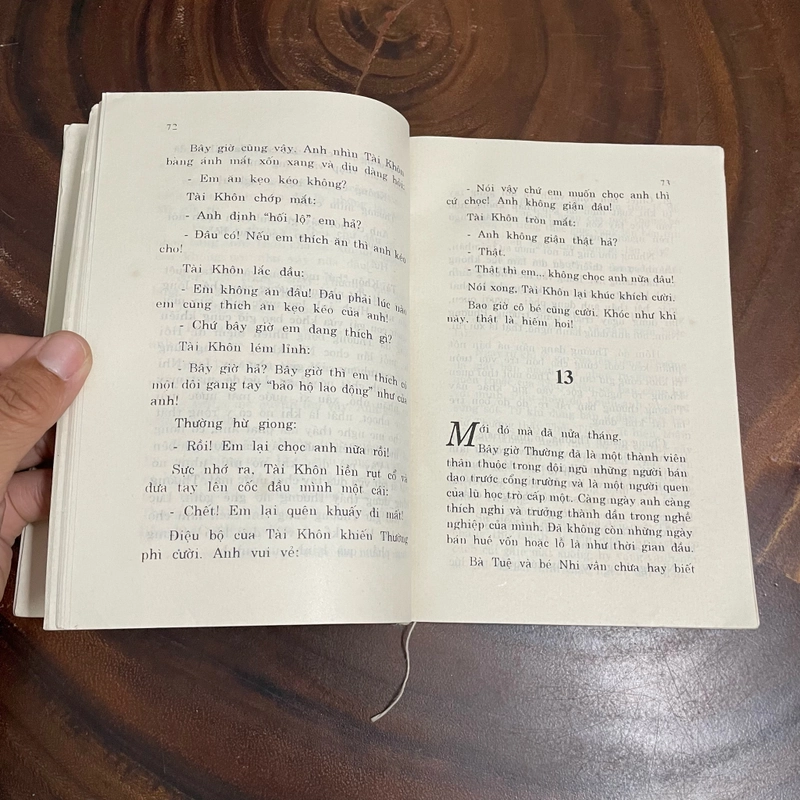 72
Bây giờ cũng vậy. Anh nhìn Tài Khôn
bằng ánh mắt xốn xang và dịu dàng hỏi:
- Em ăn kẹo kéo không?
Tài Khôn chớp mắt:
- Anh định “hối lộ” em hả?
- Đâu có! Nếu em thích ăn thì anh kéo
cho!
Tài Khôn lắc đầu:
- Em không ăn đâu! Đâu phải lúc nào
em cũng thích ăn kẹo kéo của anh!
- Chứ bây giờ em đang thích gì?
Tài Khôn lém lỉnh:
- Bây giờ hả? Bây giờ thì em thích có
một đôi găng tay “bảo hộ lao động” như của
anh!
Thường hừ giọng:
- Rồi! Em lại chọc anh nữa rồi!
Sực nhớ ra, Tài Khôn liền rụt cổ và
đưa tay lên cốc đầu mình một cái:
- Chết! Em lại quên khuấy đi mất!
Điệu bộ của Tài Khôn khiến Thường
phì cười. Anh vui vẻ:
73
- Nói vậy chứ em muốn chọc anh thì
cứ chọc! Anh không giận đâu!
Tài Khôn tròn mắt:
- Anh không giận thật hả?
- Thật.
- Thật thì em... không chọc anh nữa đâu!
Nói xong, Tài Khôn lại khúc khích cười.
Bao giờ cô bé cũng cười. Khóc như khi
nãy, thật là hiếm hoi!
13
Mới đó mà đã nửa tháng.
Bây giờ Thường đã là một thành viên
thân thuộc trong đội ngũ những người bán
dạo trước cổng trường và là một người quen
của lũ học trò cấp một. Càng ngày anh càng
thích nghi và trưởng thành dần trong nghề
nghiệp của mình. Đã không còn những ngày
bán huề vốn hoặc lỗ lã như thời gian đầu.
Bà Tuệ và bé Nhi vẫn chưa hay biết